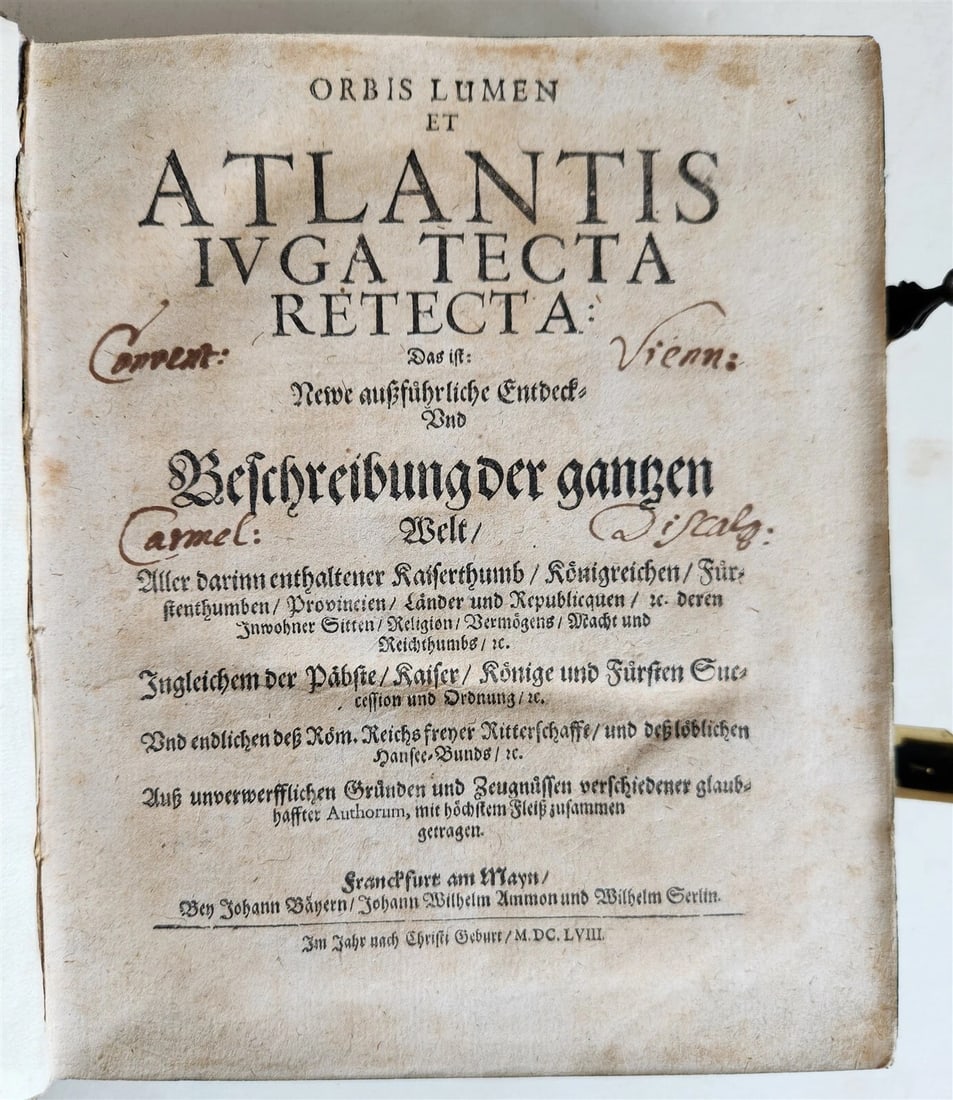 ORBIS LUMEN
ET
ATLANTIS
IVGA TECTA
RETECTA:
Convent: Das ist: Vienn:
Newe außführliche Entdeck⸗
Vnd
Beschreibung der gantzen
Carmel: Welt / Discalc:
Aller darinn enthaltener Kaiserthumb / Königreichen / Für⸗
stenthumben / Provincien / Länder und Republicquen / ꝛc. deren
Inwohner Sitten / Religion / Vermögens / Macht und
Reichthumbs / ꝛc.
Ingleichem der Päbste / Kaiser / Könige und Fürsten Suc⸗
cession und Ordnung / ꝛc.
Vnd endlichen deß Röm. Reichs freyer Ritterschafft / und deß löblichen
Hansee⸗Bunds / ꝛc.
Auß unverwerfflichen Gründen und Zeugnüssen verschiedener glaub⸗
haffter Authorum, mit höchstem Fleiß zusammen
getragen.
Franckfurt am Mayn /
Bey Johann Bäyern / Johann Wilhelm Ammon und Wilhelm Serlin.
Im Jahr nach Christi Geburt / M.DC.LVIII.